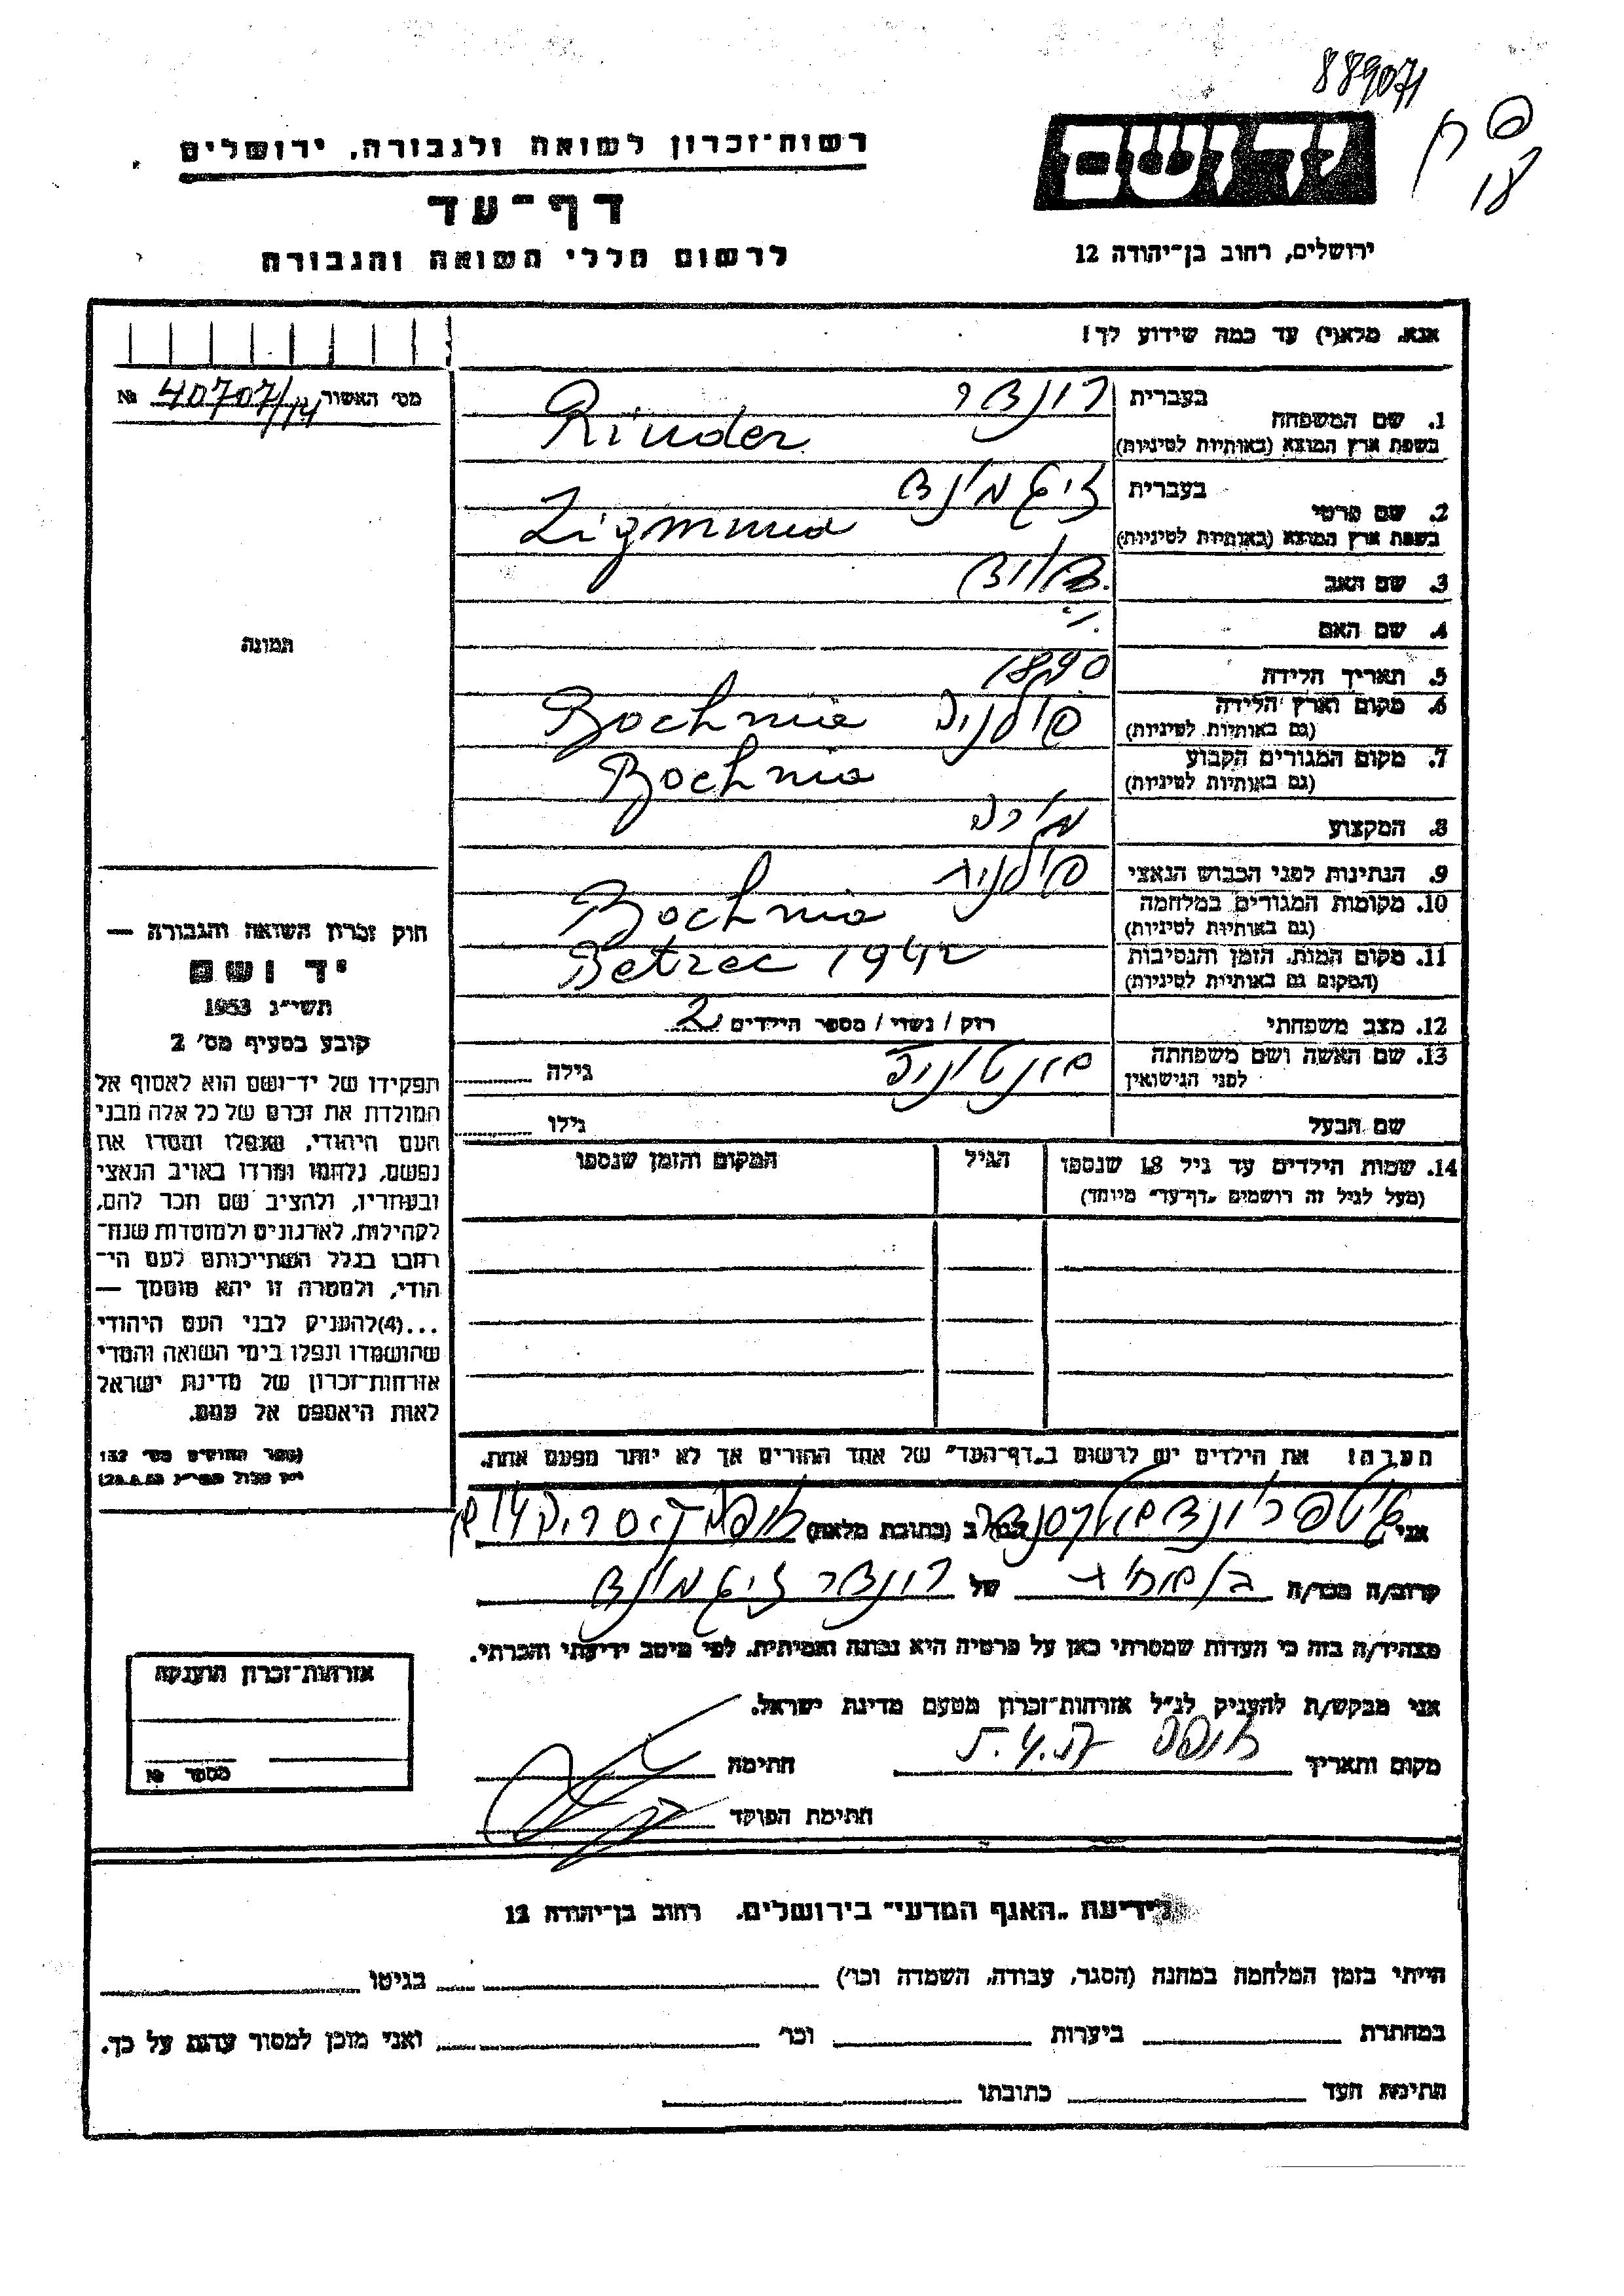 889071
יד ושם
רשות־זכרון לשואה ולגבורה, ירושלים
דף־עד
לרשום חללי השואה והגבורה
ירושלים, רחוב בן־יהודה 12
אנא, מלא(י) עד כמה שידוע לך!
מס׳ האשור 40707/14 №
1. שם המשפחה
בעברית רונדר
בשפת ארץ המוצא (באותיות לטיניות) Rinder
2. שם פרטי
בעברית זיגמונד
בשפת ארץ המוצא (באותיות לטיניות) Zigmund
3. שם האב דוד
4. שם האם
5. תאריך הלידה 1890
6. מקום וארץ הלידה פולניה Bochnia
(גם באותיות לטיניות)
7. מקום המגורים הקבוע Bochnia
(גם באותיות לטיניות)
8. המקצוע
9. הנתינות לפני הכבוש הנאצי פולנית
10. מקומות המגורים במלחמה Bochnia
(גם באותיות לטיניות)
11. מקום המות, הזמן והנסיבות Betzec 1942
(המקום גם באותיות לטיניות)
12. מצב משפחתי רוק / נשוי / מספר הילדים 2
13. שם האשה ושם משפחתה אנטוניה גילה
לפני הנישואין
שם הבעל גילו
14. שמות הילדים עד גיל 18 שנספו הגיל המקום והזמן שנספו
(מעל לגיל זה רושמים „דף־עד״ מיוחד)
הערה: את הילדים יש לרשום ב„דף־העד״ של אחד ההורים אך לא יותר מפעם אחת.
תמונה
חוק זכרון השואה והגבורה —
יד ושם
תשי״ג 1953
קובע בסעיף מס׳ 2
תפקידו של יד־ושם הוא לאסוף אל
המולדת את זכרם של כל אלה מבני
העם היהודי, שנפלו ומסרו את
נפשם, נלחמו ומרדו באויב הנאצי
ובעוזריו, ולהציב שם וזכר להם,
לקהילות, לארגונים ולמוסדות שנח־
רבו בגלל השתייכותם לעם הי־
הודי, ולמטרה זו יהא מוסמך —
...(4)להעניק לבני העם היהודי
שהושמדו ונפלו בימי השואה והמרי
אזרחות־זכרון של מדינת ישראל
לאות היאספם אל עמם.
(ספר החוקים מס׳ 132
אני הגר ב (כתובת מלאה)
קרוב/ה מכר/ה של רונדר זיגמונד
מצהיר/ה בזה כי העדות שמסרתי כאן על פרטיה היא נכונה ואמיתית, לפי מיטב ידיעתי והכרתי.
אני מבקש/ת להעניק לנ״ל אזרחות־זכרון מטעם מדינת ישראל.
מקום ותאריך חיפה חתימה
חתימת הפוקד
אזרחות־זכרון הוענקה
מספר №
לידיעת „האגף המדעי״ בירושלים, רחוב בן־יהודה 12
הייתי בזמן המלחמה במחנה (הסגר, עבודה, השמדה וכו׳) בגיטו
במחתרת ביערות וכו׳ ואני מוכן למסור עדות על כך.
חתימת העד כתובתו